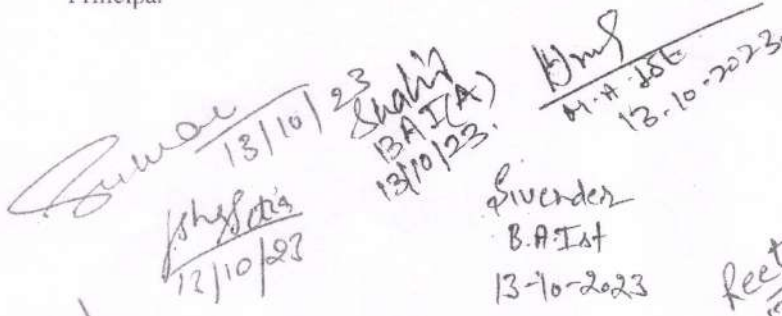 Principal
Suman
13/10/23
Shalin
BA I(A)
13/10/23.
M.A. Ist
13.10.2023
13/10/23
Sivender
B.A. Ist
13-10-2023
Reet